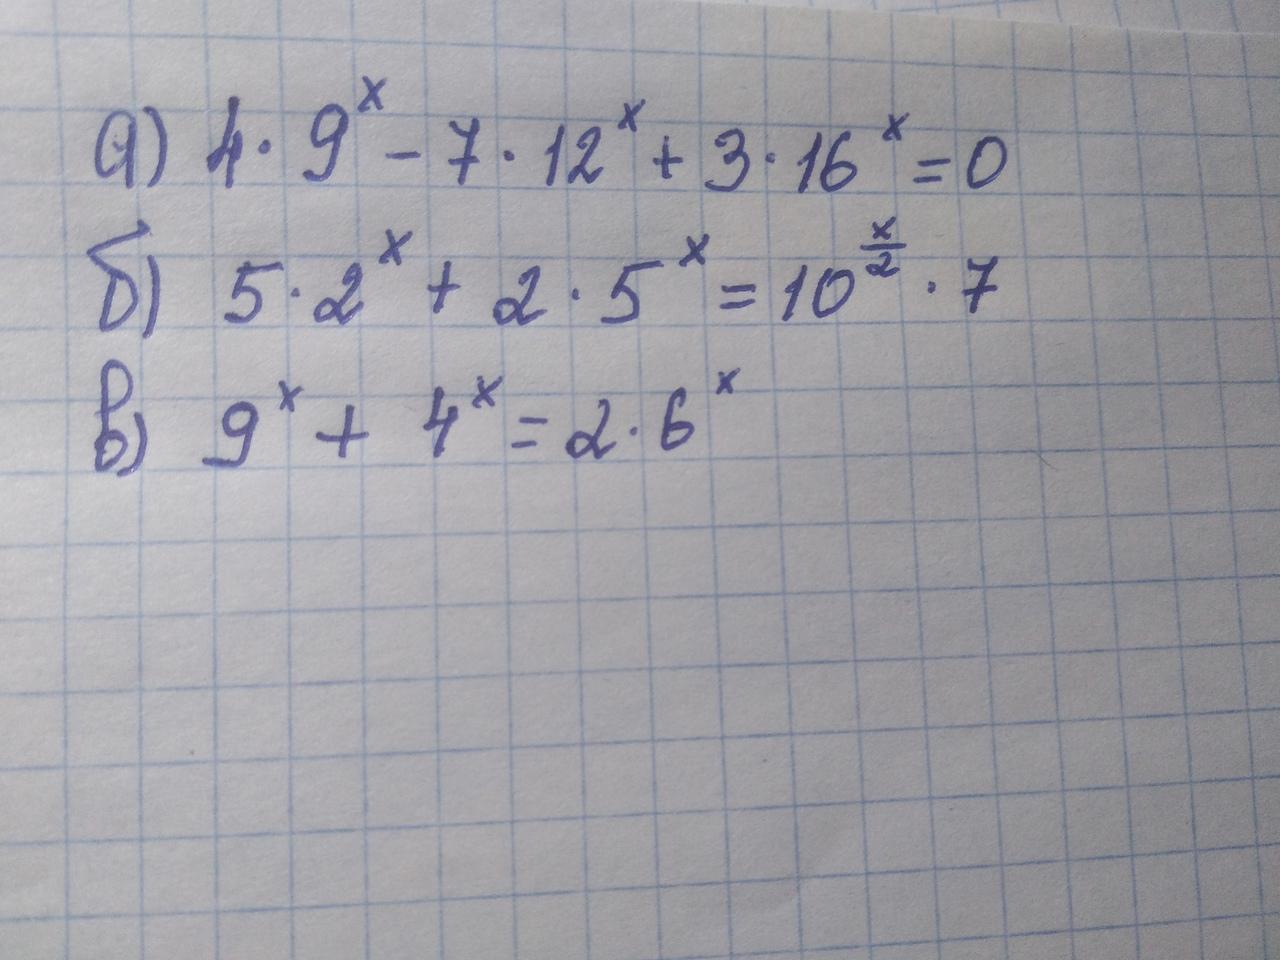 а) 4 · 9^x − 7 · 12^x + 3 · 16^x = 0
б) 5 · 2^x + 2 · 5^x = 10^(x/2) · 7
в) 9^x + 4^x = 2 · 6^x